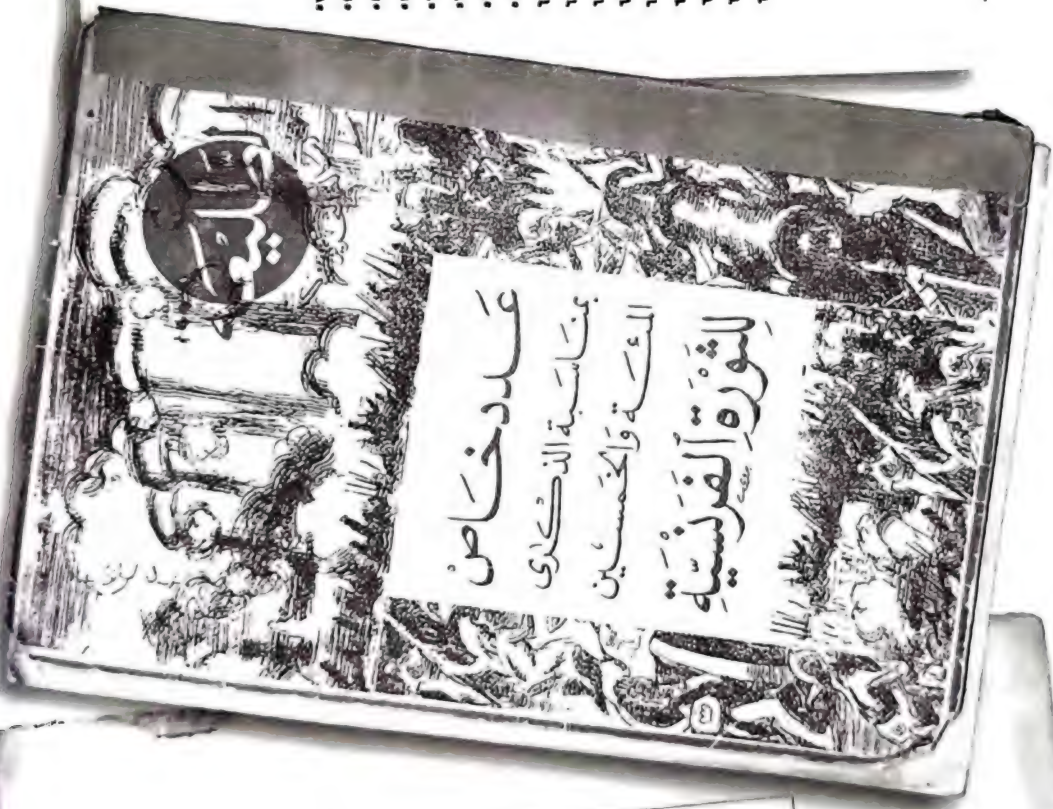 الطليعة
عَدد خَاصْ
بمنَاسَبة الذكرى
المئَة وَالخمسَين
لِلثَّوْرَةِ الفَرَنْسِيَّةِ